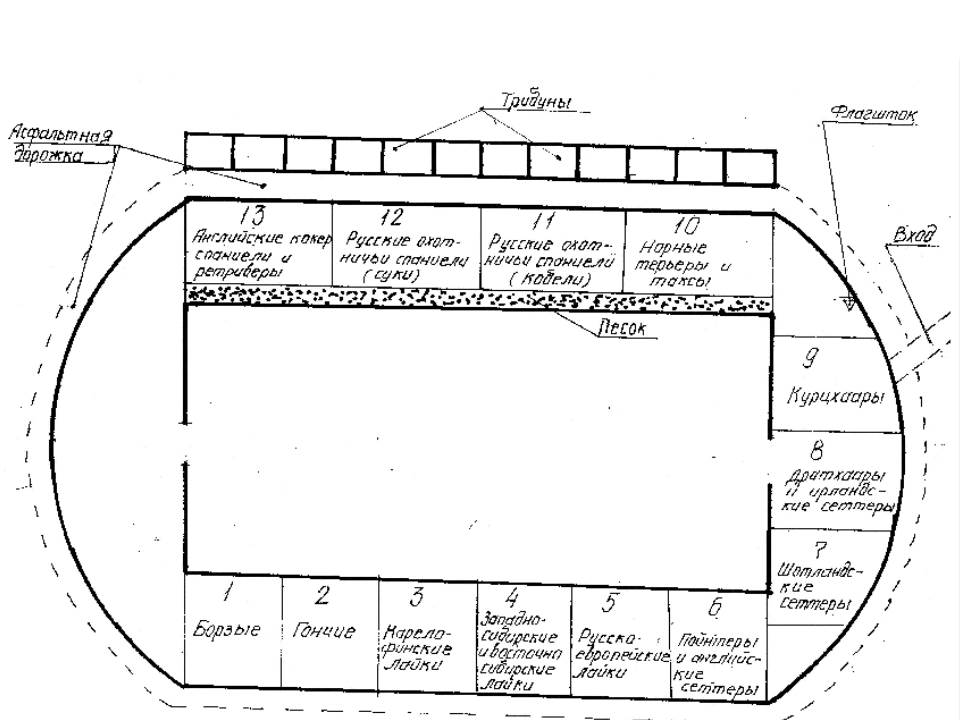 Трибуны
Флагшток
Асфальтная
дорожка
Вход
13
Английские кокер
спаниели и
ретриверы
12
Русские охот-
ничьи спаниели
(суки)
11
Русские охот-
ничьи спаниели
(кобели)
10
Норные
терьеры и
таксы
Песок
9
Курцхаары
8
Дратхаары
и ирландс-
кие сеттеры
7
Шотландс-
кие
сеттеры
1
Борзые
2
Гончие
3
Карело-
финские
лайки
4
Западно-
сибирские
и восточно
сибирские
лайки
5
Русско-
европейские
лайки
6
Пойнтеры
и английс-
кие
сеттеры